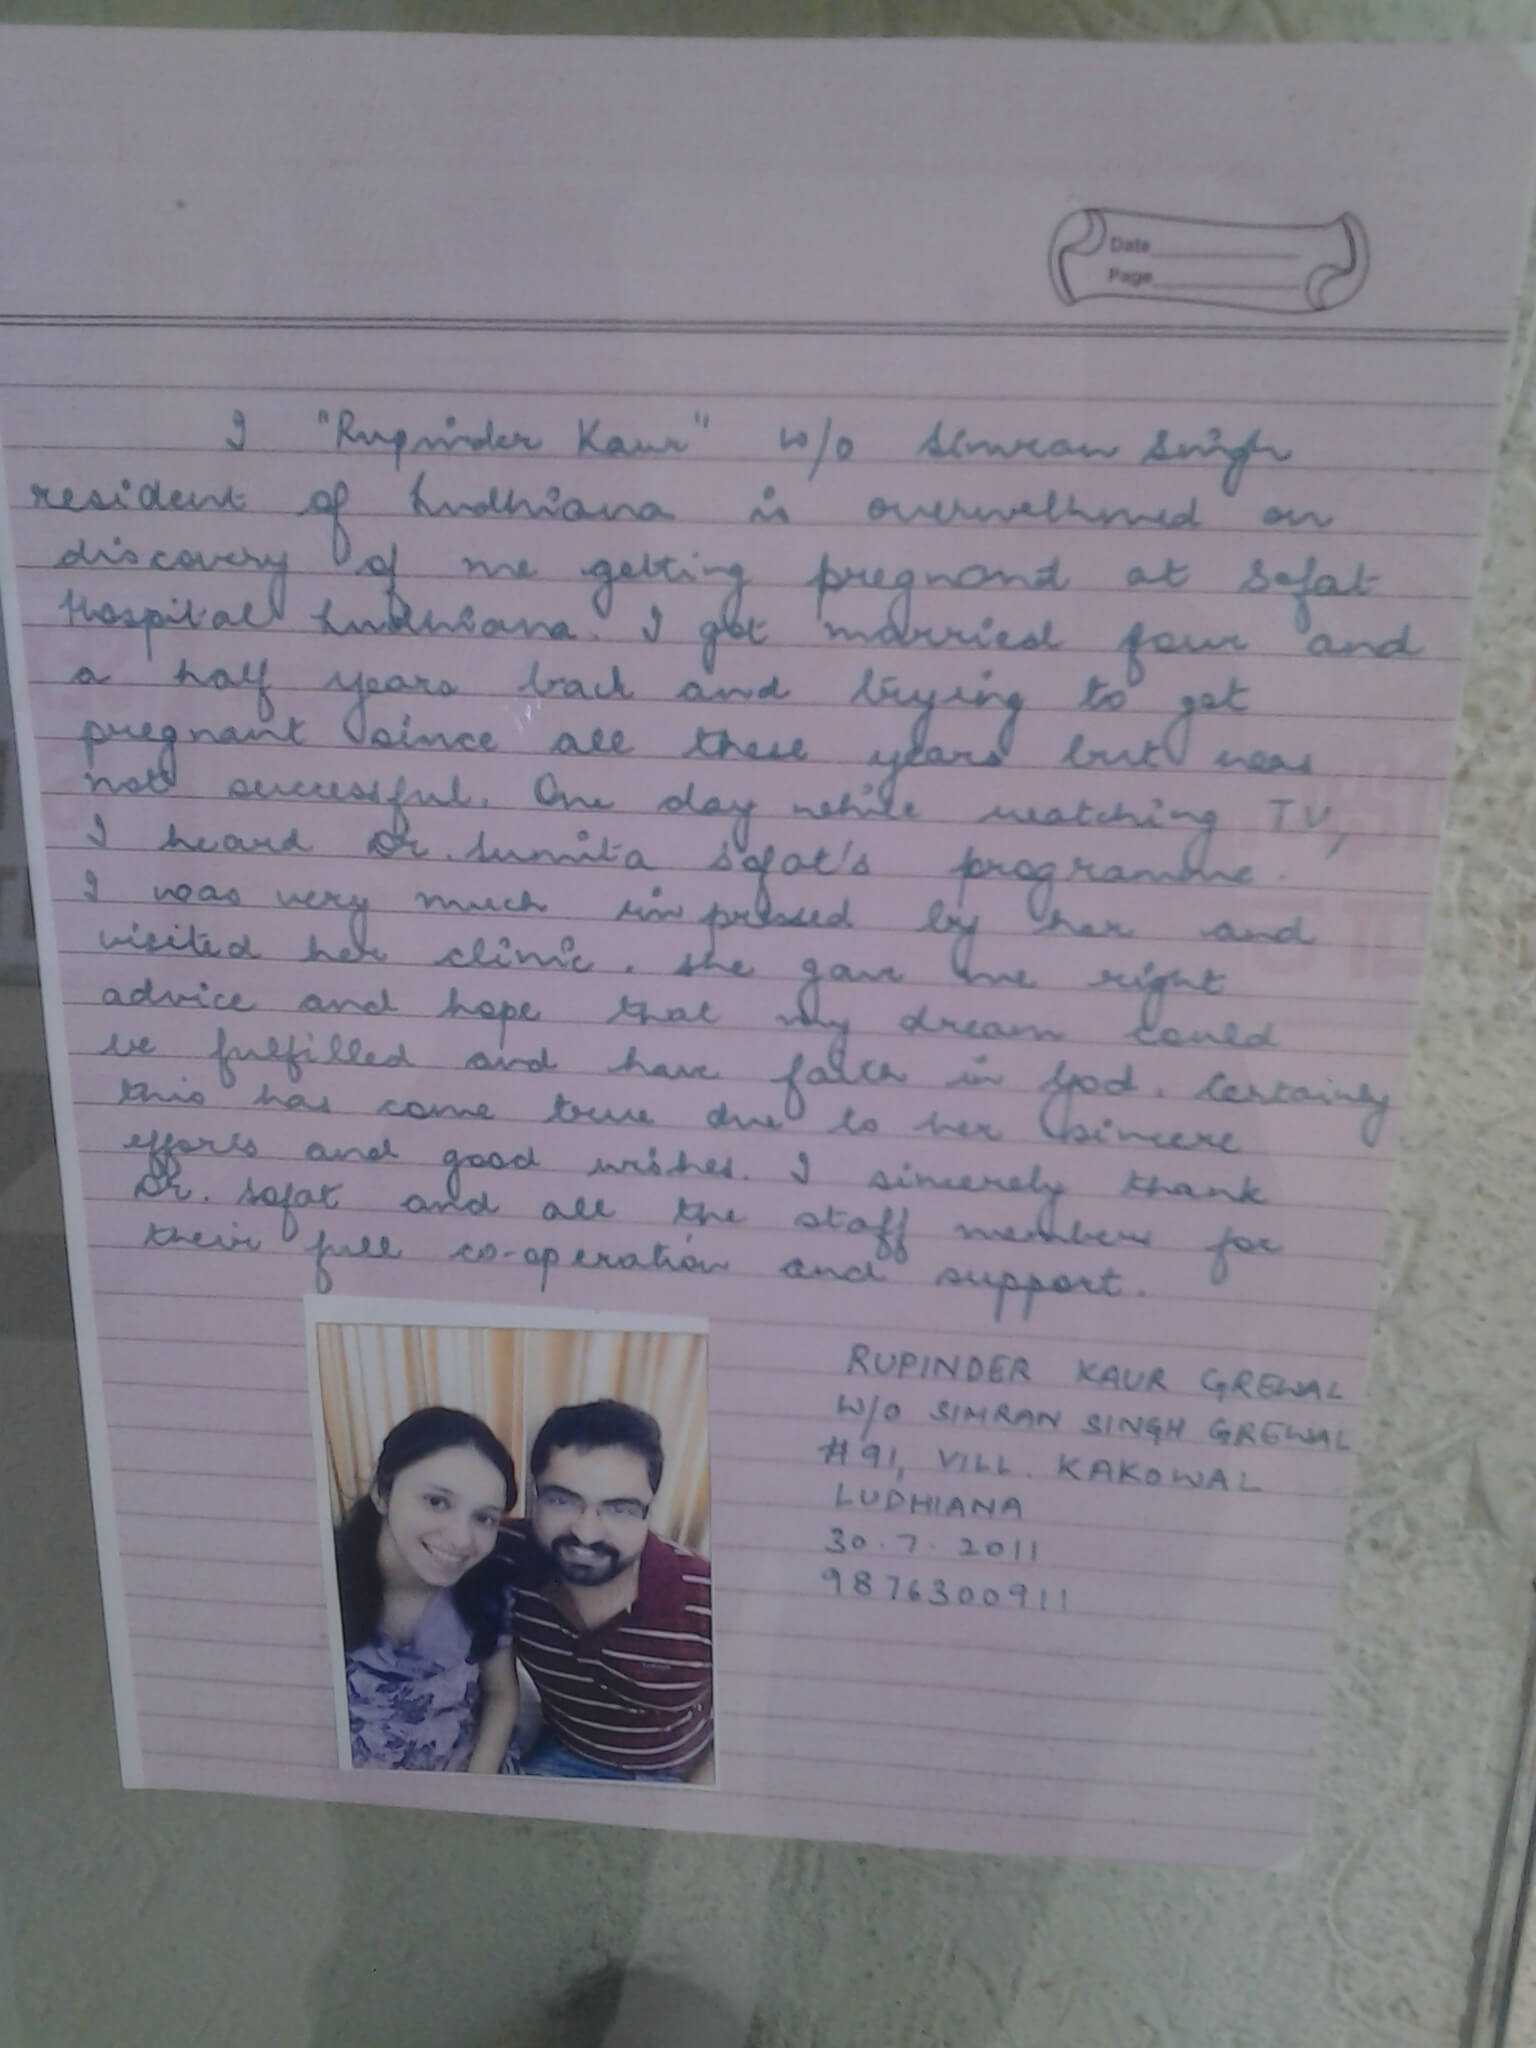 Date
Page
I "Rupinder Kaur" w/o Simran Singh
resident of Ludhiana is overwelhmed on
discovery of me getting pregnand at Sofat
Hospital Ludhiana. I got married four and
a half years back and trying to get
pregnant since all these years but was
not successful. One day while watching TV,
I heard Dr. Sumita Sofat's programme.
I was very much impressed by her and
visited her clinic. She gave me right
advice and hope that my dream could
be fulfilled and have faith in God. Certainly
this has come true due to her sincere
efforts and good wishes. I sincerely thank
Dr. Sofat and all the staff members for
their full co-operation and support.
RUPINDER KAUR GREWAL
W/O SIMRAN SINGH GREWAL
#91, VILL. KAKOWAL
LUDHIANA
30.7.2011
9876300911